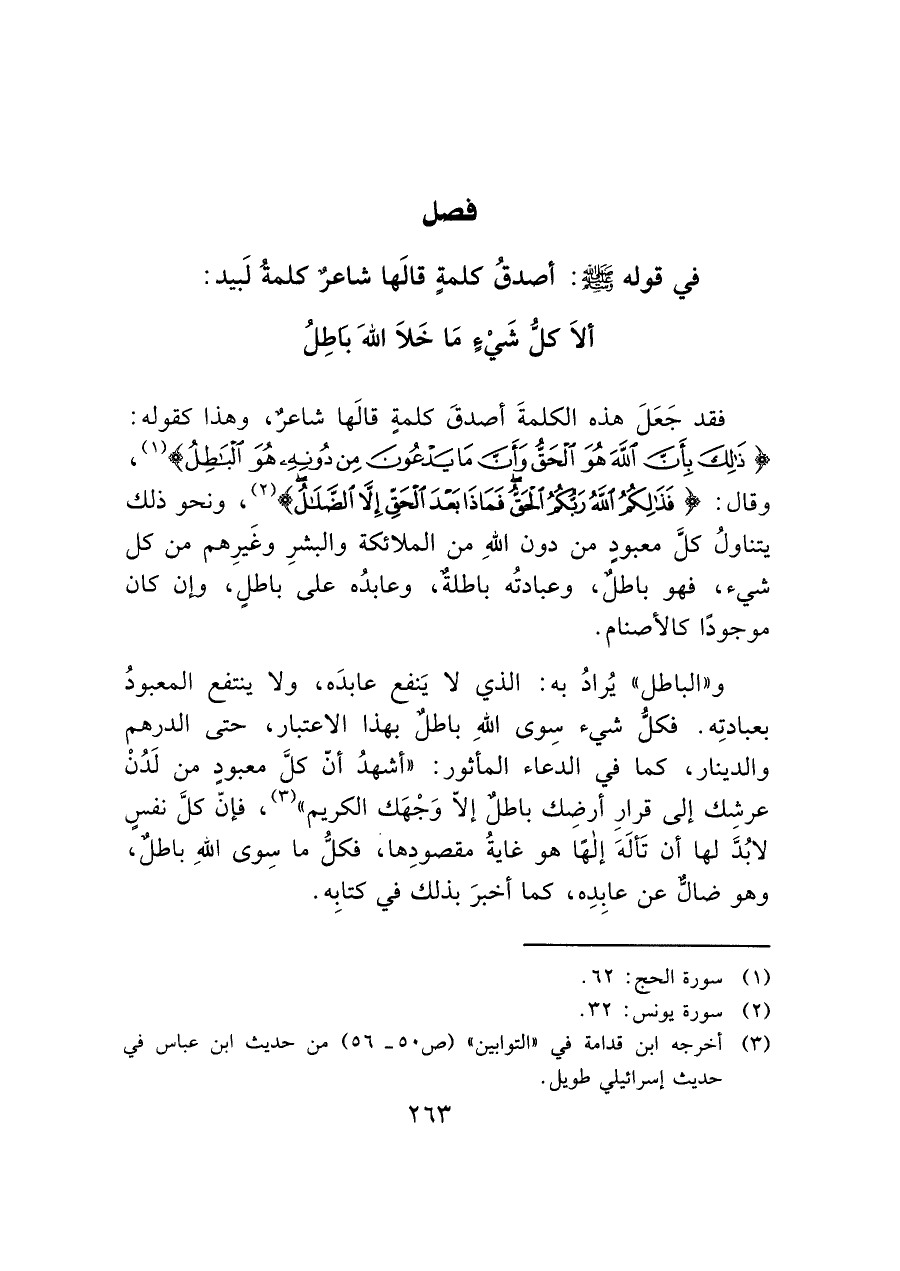 فصل
في قوله ﷺ: أصدقُ كلمةٍ قالَها شاعرٌ كلمةُ لَبيد:
ألاَ كلُّ شَيْءٍ مَا خَلاَ اللهَ بَاطِلُ
فقد جَعَلَ هذه الكلمةَ أصدقَ كلمةٍ قالَها شاعرٌ، وهذا كقوله:
﴿ذَٰلِكَ بِأَنَّ ٱللَّهَ هُوَ ٱلْحَقُّ وَأَنَّ مَا يَدْعُونَ مِن دُونِهِۦ هُوَ ٱلْبَاطِلُ﴾(١)،
وقال: ﴿فَذَٰلِكُمُ ٱللَّهُ رَبُّكُمُ ٱلْحَقُّ ۖ فَمَاذَا بَعْدَ ٱلْحَقِّ إِلَّا ٱلضَّلَٰلُ ۖ﴾(٢)، ونحو ذلك
يتناولُ كلَّ معبودٍ من دون اللهِ من الملائكة والبشرِ وغَيرِهم من كل
شيء، فهو باطلٌ، وعبادتُه باطلةٌ، وعابدُه على باطلٍ، وإن كان
موجودًا كالأصنام.
و«الباطل» يُرادُ به: الذي لا يَنفع عابدَه، ولا ينتفع المعبودُ
بعبادتِه. فكلُّ شيء سِوى اللهِ باطلٌ بهذا الاعتبار، حتى الدرهم
والدينار، كما في الدعاء المأثور: «أشهدُ أنّ كلَّ معبودٍ من لَدُنْ
عرشِك إلى قرارِ أرضِك باطلٌ إلاّ وَجْهَك الكريم»(٣)، فإنّ كلَّ نفسٍ
لابُدَّ لها أن تَألَهَ إلٰهًا هو غايةُ مقصودِها، فكلُّ ما سِوى اللهِ باطلٌ،
وهو ضالٌّ عن عابِدِه، كما أخبرَ بذلك في كتابِه.
(١) سورة الحج: ٦٢.
(٢) سورة يونس: ٣٢.
(٣) أخرجه ابن قدامة في «التوابين» (ص٥٠ـ ٥٦) من حديث ابن عباس في
حديث إسرائيلي طويل.
٢٦٣